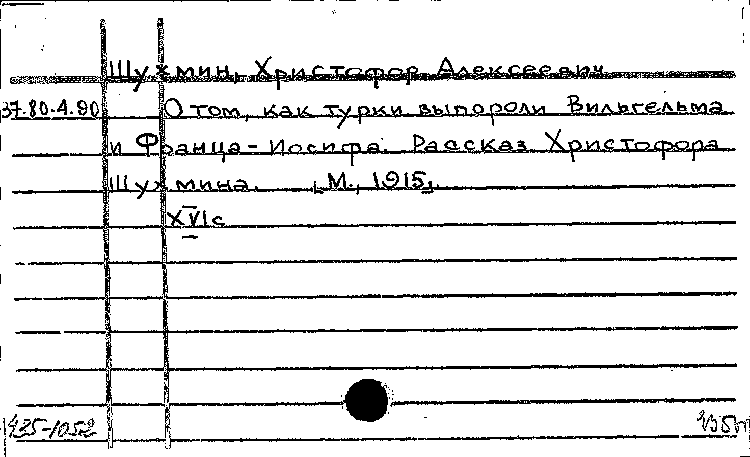 Шухмин, Христофор Алексеевич
37.80.4.90 О том, как турки выпороли Вильгельма
и Франца-Иосифа. Рассказ Христофора
Шухмина. [М., 1915].
XVIс
435-1052